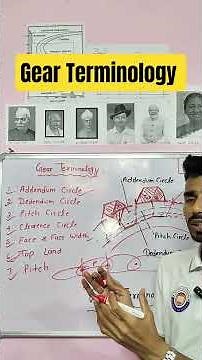 Gear Terminology
Gear Terminology
1. Addendum Circle
2. Dedendum Circle
3. Pitch Circle
4. Clearence Circle
5. Face & Face Width
6. Top Land
7. Pitch
Addendum Circle
Pitch Circle